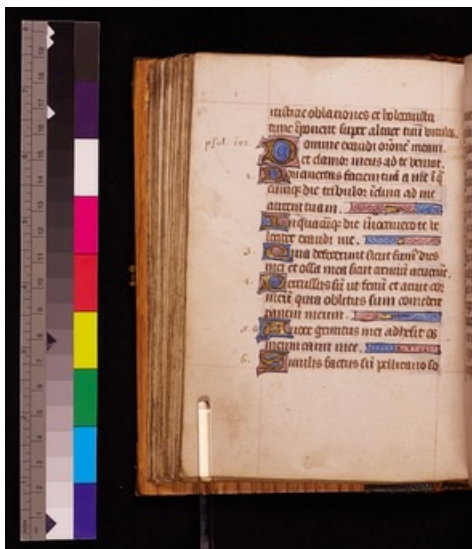 iusticiae oblationes et holocausta
tunc imponent super altare tuū vitulos.
psal. 101.
Domine exaudi orōne meam
et clamor meus ad te veniat.
2. Non avertas faciem tuā a me ī q̄
cumq̄ die tribulor īclina ad me
aurem tuam.
In quacūq̄ die invocavero te ve
lociter exaudi me.
3. Quia defecerunt sicut fum⁹ dies
mei et ossa mea sicut
4. Percussus sū ut fenū et aruit cor
meū quia oblitus sum comedere
panem meum.
5. A voce gemitus mei adhesit os
meum carni mee.
6. Similis factus sū pellicano so